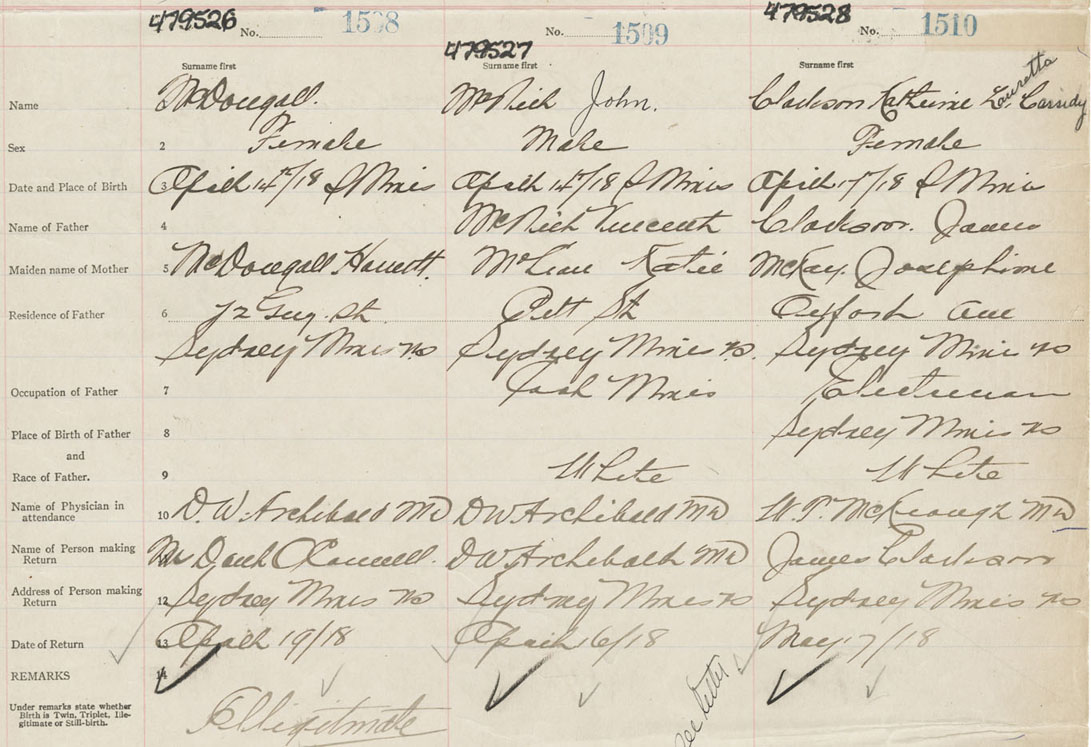 479526 No. 1508 479527 No. 1509 479528 No. 1510
Surname first Surname first Surname first
Name McDougall. McNich John. Clackson Katherine Lauretta Cassidy
Sex 2 Female Male Female
Date and Place of Birth 3 April 14th/18 S Mines April 14th/18 S Mines April 17/18 S Mines
Name of Father 4 McNich Vincent Clackson. James
Maiden name of Mother 5 McDougall Harriett. McLean Katie McKay. Josephine
Residence of Father 6 72 Guy. St. Pitt St Oxford Ave
Sydney Mines NS Sydney Mines NS. Sydney Mines NS
Occupation of Father 7 Mines Electrician
Place of Birth of Father 8 Sydney Mines NS
and
Race of Father. 9 White White
Name of Physician in attendance 10 D. W. Archibald MD D W Archibald MD MD
Name of Person making Return D W Archibald MD James Clackson
Address of Person making Return 12 Sydney Mines NS Sydney Mines NS Sydney Mines NS
Date of Return 13 April 19/18 April 16/18 May 7/18
REMARKS 14
Under remarks state whether Birth is Twin, Triplet, Ille-
gitimate or Still-birth. Illigitmate
see letter